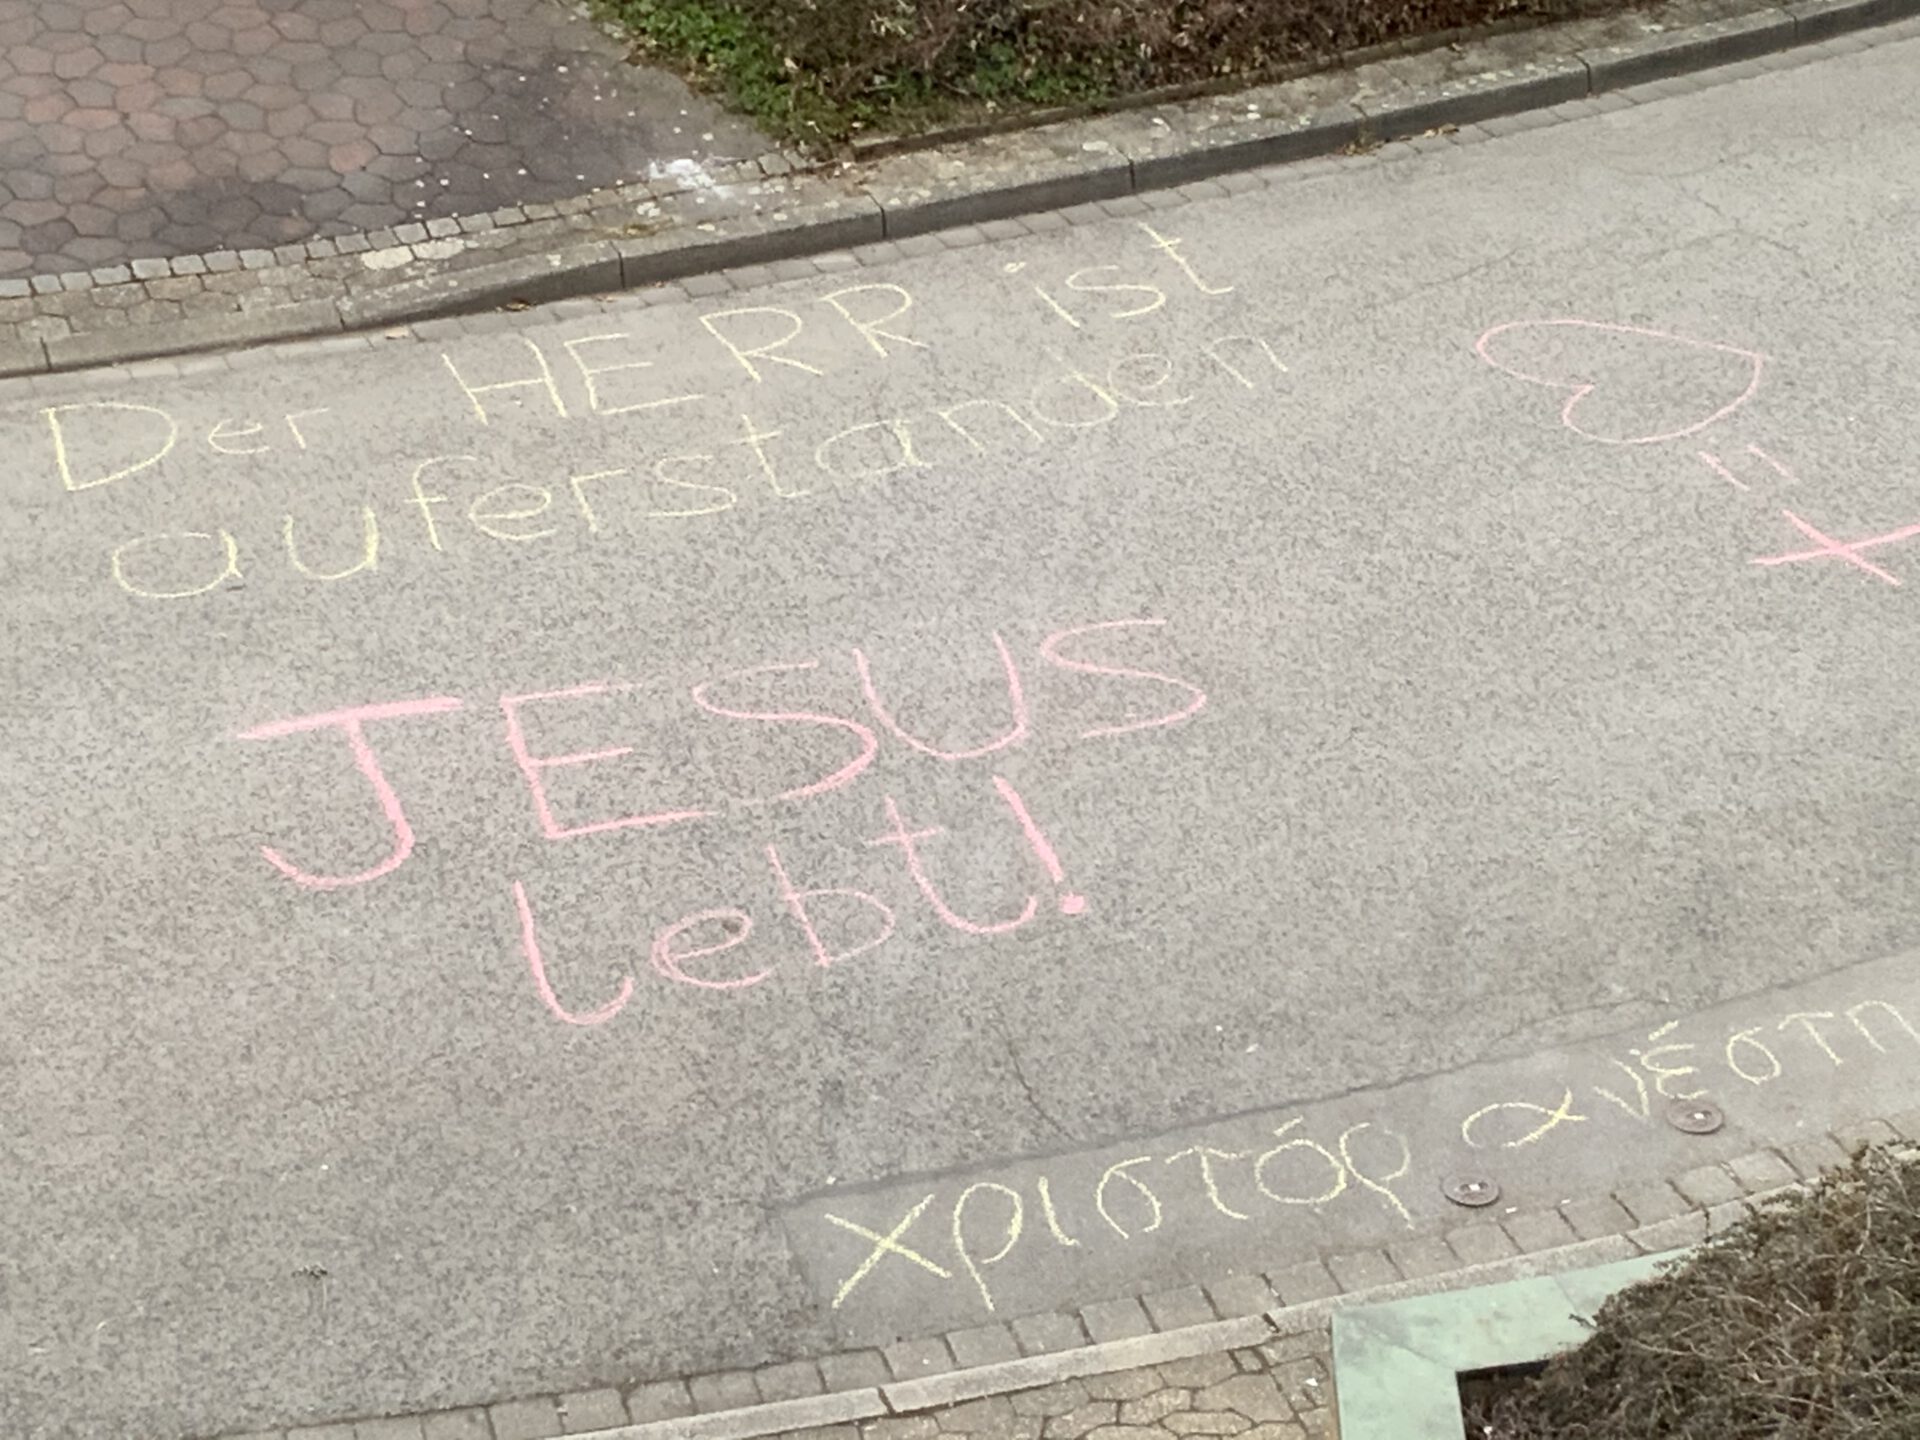 Der HERR ist
auferstanden
JESUS
lebt!
= +
χριστός ανέστη